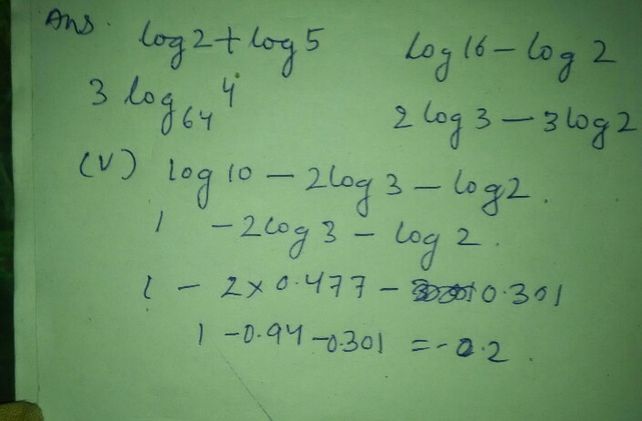 Ans.
log 2 + log 5 log 16 - log 2
3 log₆₄ 4 2 log 3 - 3 log 2
(V) log 10 - 2 log 3 - log 2.
1 - 2 log 3 - log 2.
1 - 2 × 0.477 - 0.301
1 - 0.94 - 0.301 = - 0.2.